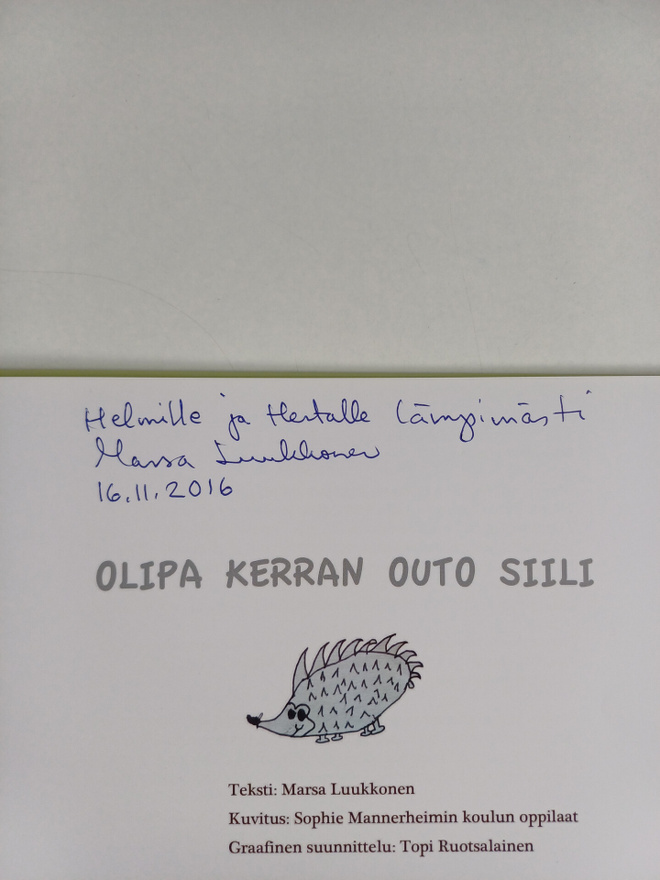 Helmille ja Hertalle lämpimästi
Marsa Luukkonen
16.11.2016
OLIPA KERRAN OUTO SIILI
Teksti: Marsa Luukkonen
Kuvitus: Sophie Mannerheimin koulun oppilaat
Graafinen suunnittelu: Topi Ruotsalainen